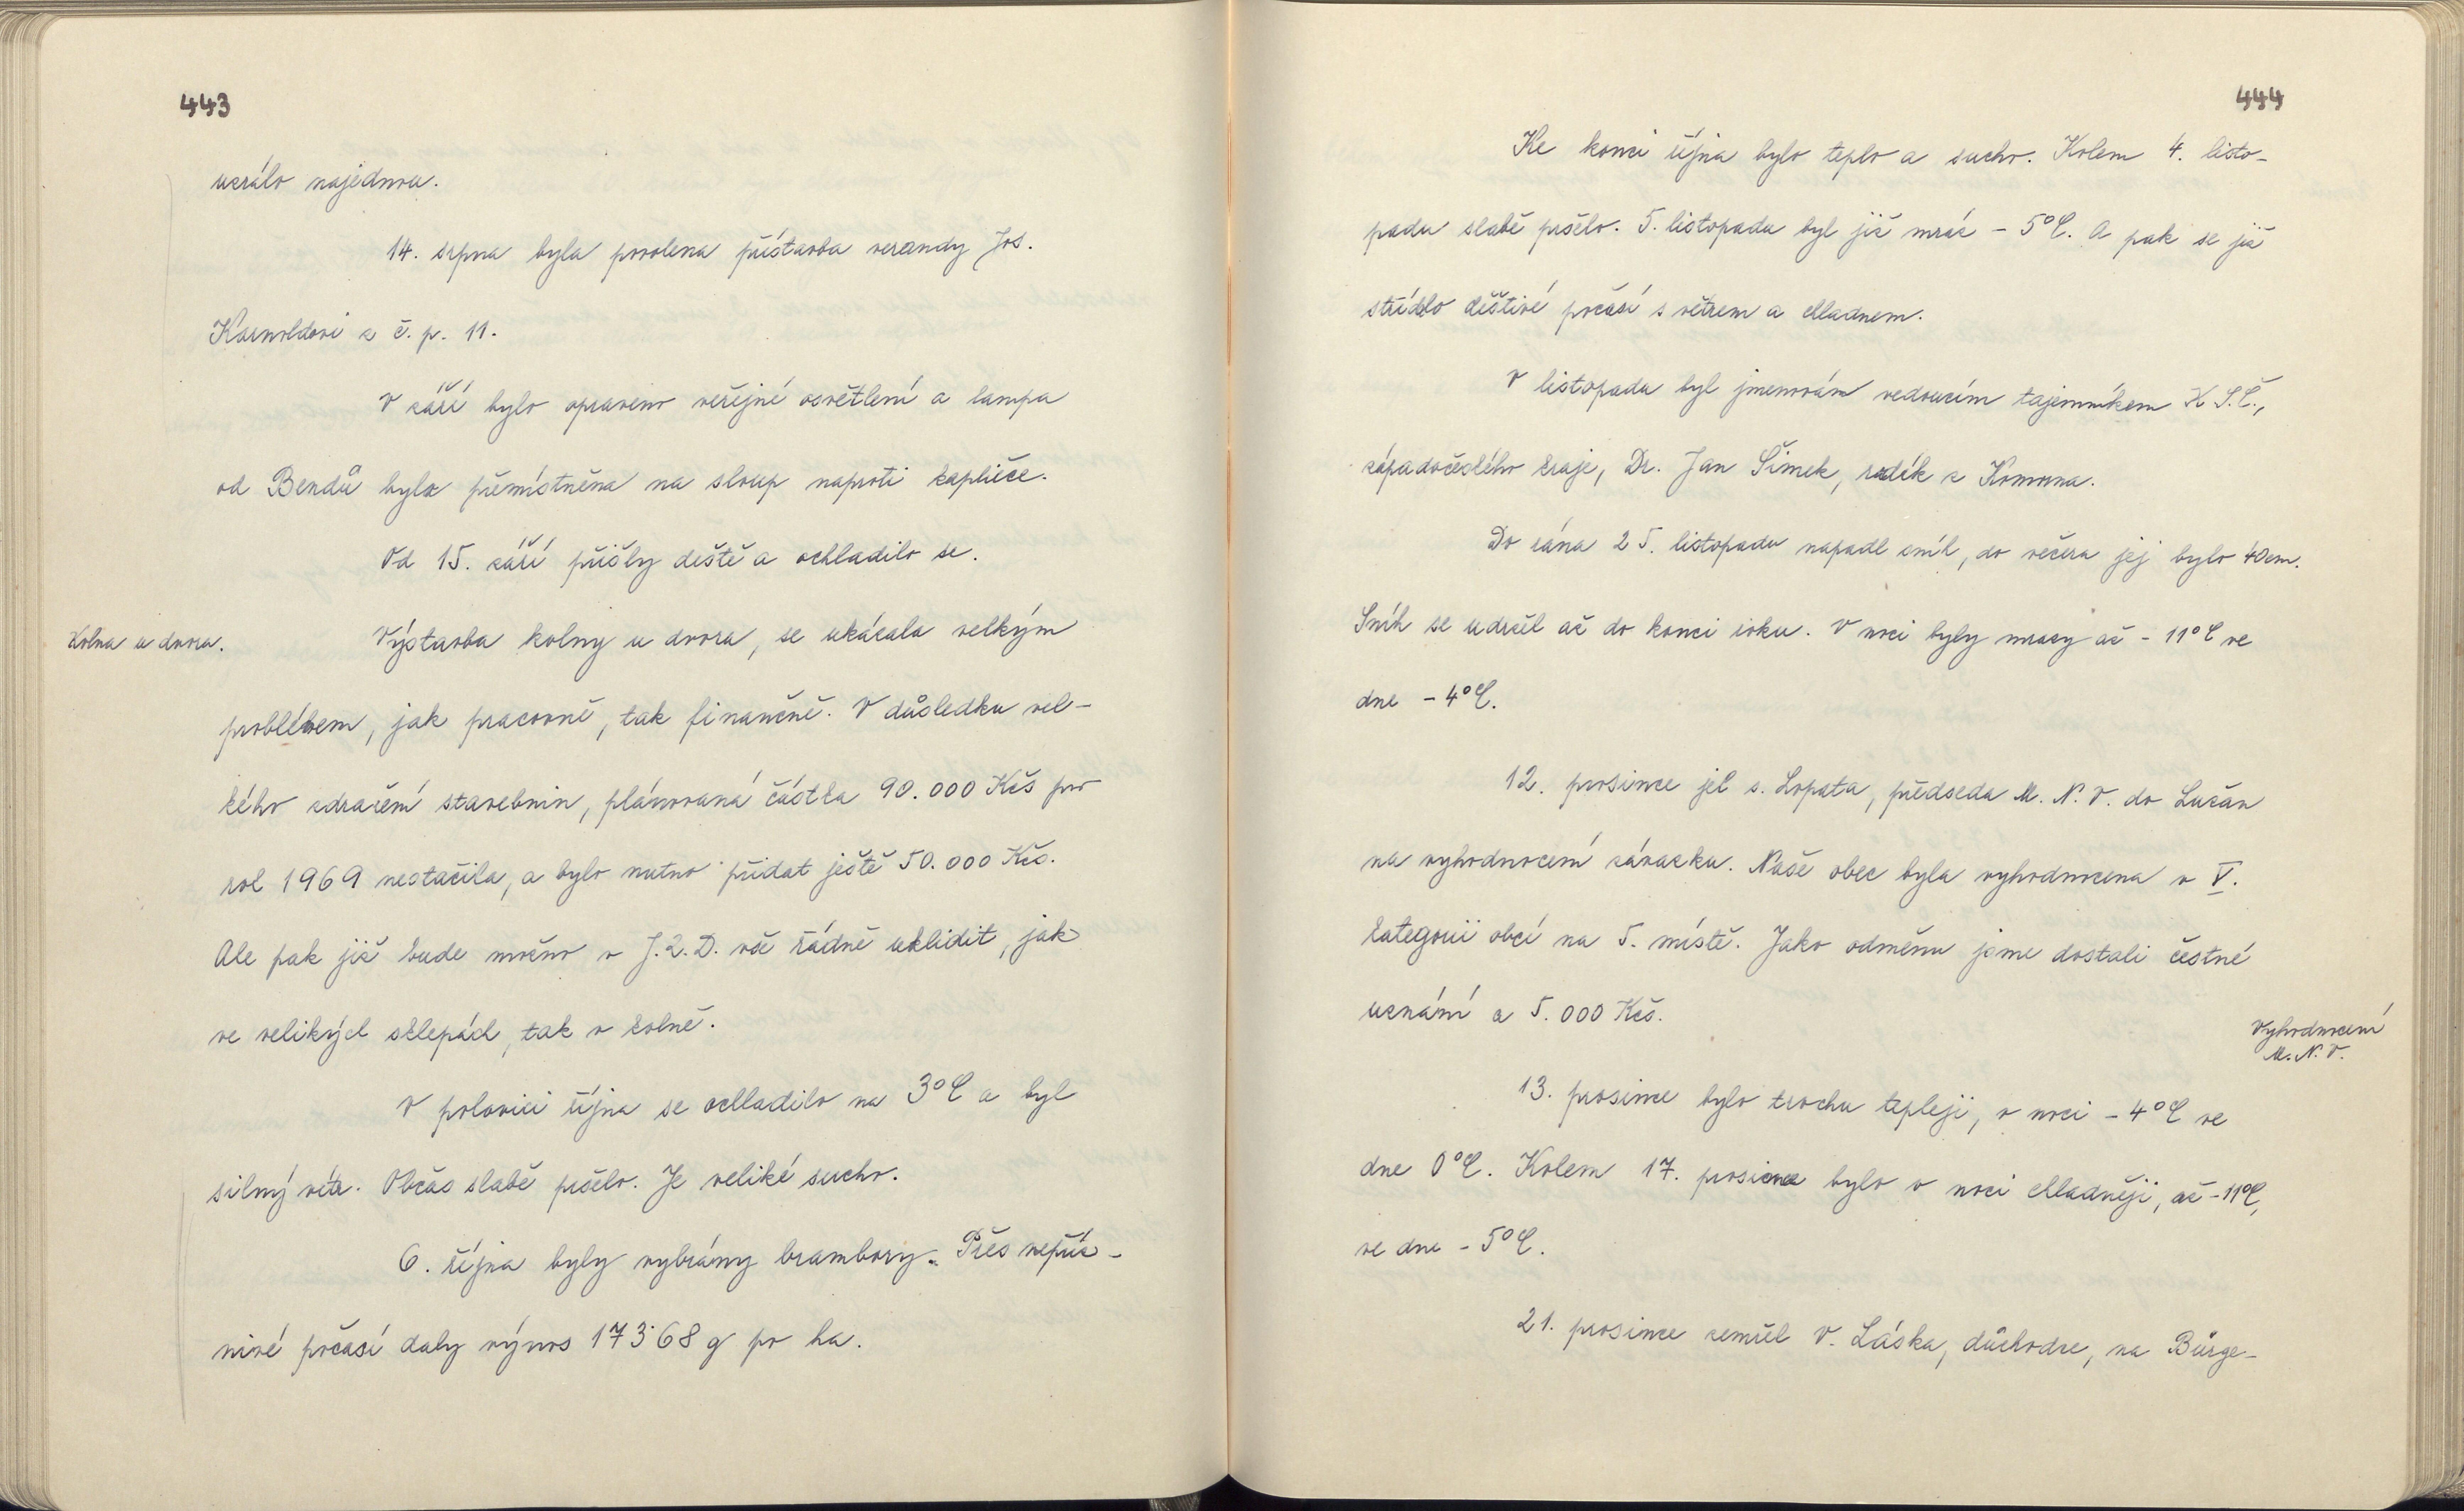 443
uzrálo najednou.
14. srpna byla povolena přístavba verandy Jos.
Karnoldovi z č. p. 11.
V září bylo opraveno veřejné osvětlení a lampa
od Bendů byla přemístněna na sloup naproti kapličce.
Od 15. září přišly deště a ochladilo se.
Kolna u dvora.
Výstavba kolny u dvora, se ukázala velkým
problémem, jak pracovně, tak finančně. V důsledku vel-
kého zdražení stavebnin, plánovaná částka 90.000 Kčs pro
rok 1969 nestačila, a bylo nutno přidat ještě 50.000 Kčs.
Ale pak již bude možno v J.Z.D. vše řádně uklidit, jak
ve velikých sklepách, tak v kolně.
V polovici října se ochladilo na 3°C a byl
silný vítr. Občas slabě pršelo. Je veliké sucho.
6. října byly vybrány brambory. Přes nepříz-
nivé počasí daly výnos 173˙68 q po ha.
444
Ke konci října bylo teplo a sucho. Kolem 4. listo-
padu slabě pršelo. 5. listopadu byl již mráz - 5°C. A pak se již
střídalo deštivé počasí s větrem a chladnem.
V listopadu byl jmenován vedoucím tajemníkem K S.Č.,
západočeského kraje, Dr. Jan Šimek, rodák z Komorna.
Do rána 25. listopadu napadl sníh, do večera jej bylo 40cm.
Sníh se udržel až do konci roku. V noci byly mrazy až - 11°C ve
dne - 4°C.
12. prosince jel s. Lopata, předseda M. N. V. do Lužan
na vyhodnocení závazku. Naše obec byla vyhodnocena v V.
kategorii obcí na 5. místě. Jako odměnu jsme dostali čestné
uznání a 5.000 Kčs.
Vyhodnocení
M. N. V.
13. prosince bylo trochu tepleji, v noci - 4°C ve
dne 0°C. Kolem 17. prosince bylo v noci chladněji, až - 11°C,
ve dne - 5°C.
21. prosince zemřel V. Láska, důchodce, na Bürge-